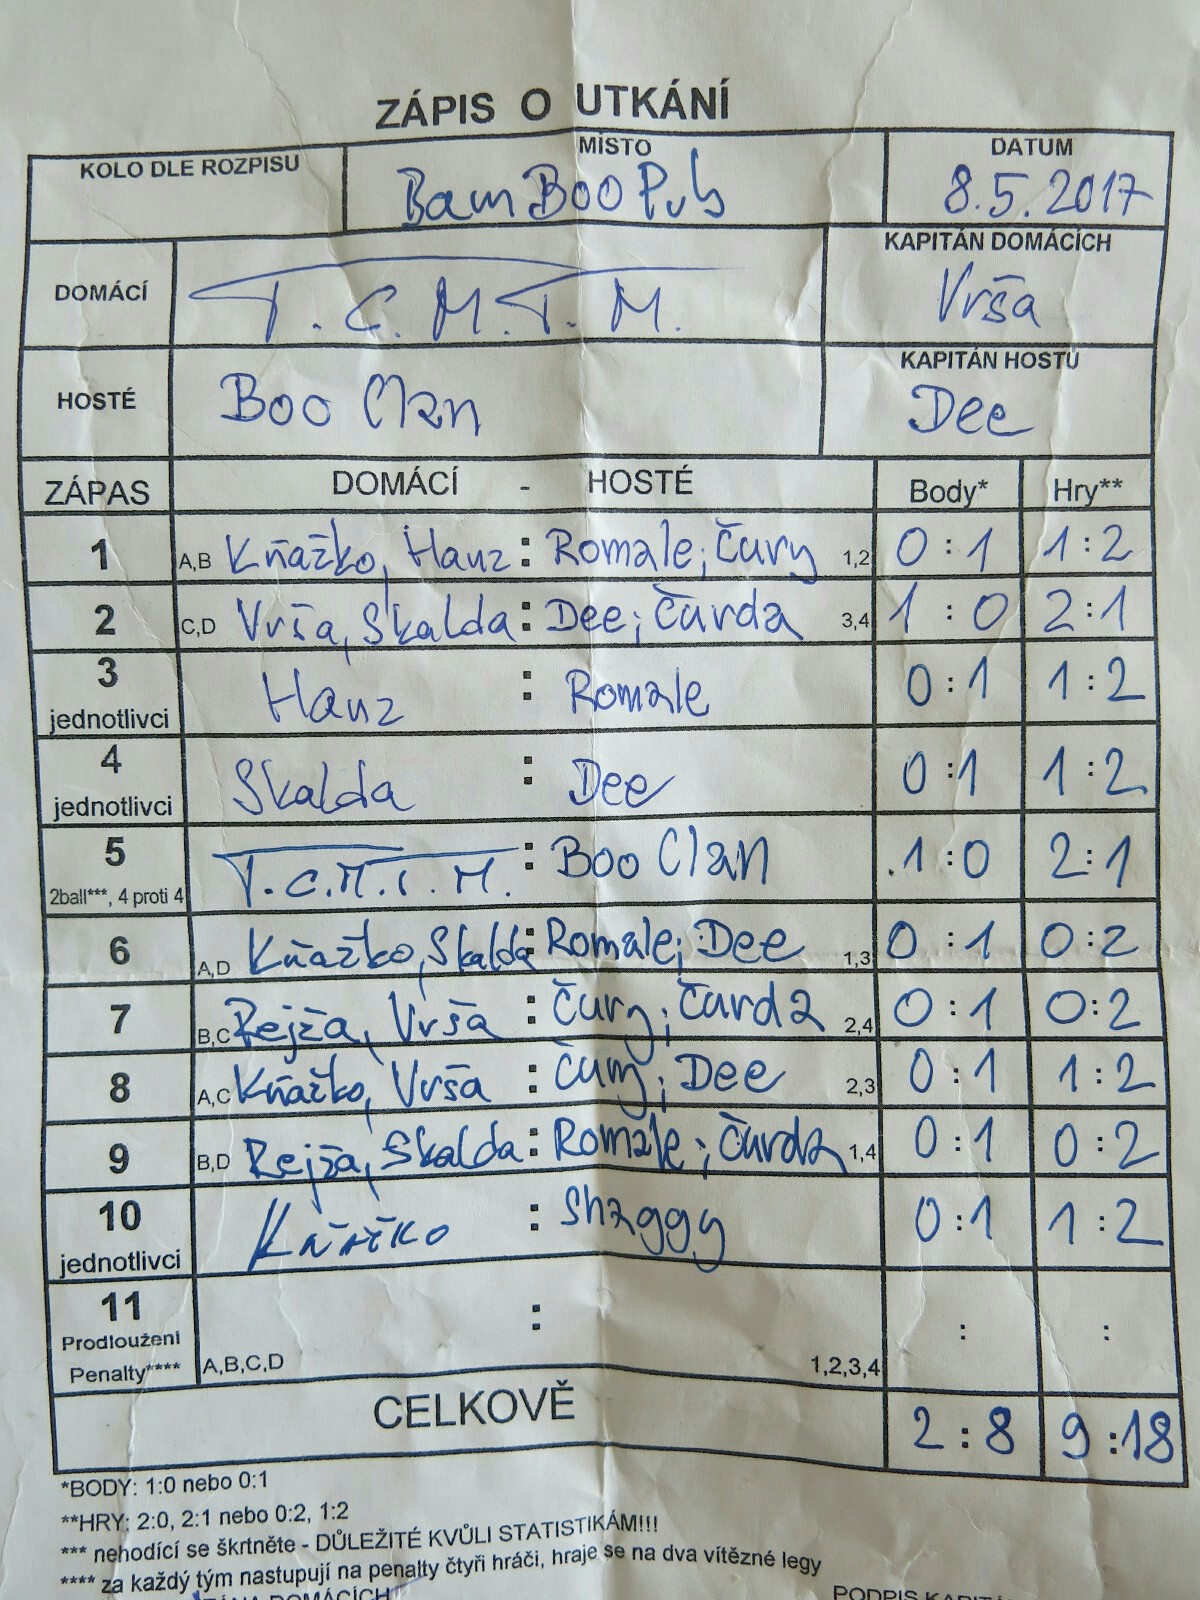 ZÁPIS O UTKÁNÍ
KOLO DLE ROZPISU MÍSTO DATUM
BamBooPub 8.5.2017
DOMÁCÍ T.C.M.T.M. KAPITÁN DOMÁCÍCH
Vrša
HOSTÉ Boo Clan KAPITÁN HOSTŮ
Dee
ZÁPAS DOMÁCÍ - HOSTÉ Body* Hry**
1 A,B Kňažko, Hanz : Romale; Čury 1,2 0:1 1:2
2 C,D Vrša, Skalda : Dee; Čarda 3,4 1:0 2:1
3 jednotlivci Hanz : Romale 0:1 1:2
4 jednotlivci Skalda : Dee 0:1 1:2
5 2ball***, 4 proti 4 T.C.M.T.M. : Boo Clan 1:0 2:1
6 A,D Kňažko, Skalda : Romale; Dee 1,3 0:1 0:2
7 B,C Rejža, Vrša : Čury; Čarda 2,4 0:1 0:2
8 A,C Kňažko, Vrša : Čury; Dee 2,3 0:1 1:2
9 B,D Rejža, Skalda : Romale; Čarda 1,4 0:1 0:2
10 jednotlivci Kňažko : Shaggy 0:1 1:2
11 : : :
Prodloužení
Penalty**** A,B,C,D 1,2,3,4
CELKOVĚ 2:8 9:18
*BODY: 1:0 nebo 0:1
**HRY: 2:0, 2:1 nebo 0:2, 1:2
*** nehodící se škrtněte - DŮLEŽITÉ KVŮLI STATISTIKÁM!!!
**** za každý tým nastupují na penalty čtyři hráči, hraje se na dva vítězné legy
DOMÁCÍCH PODPIS